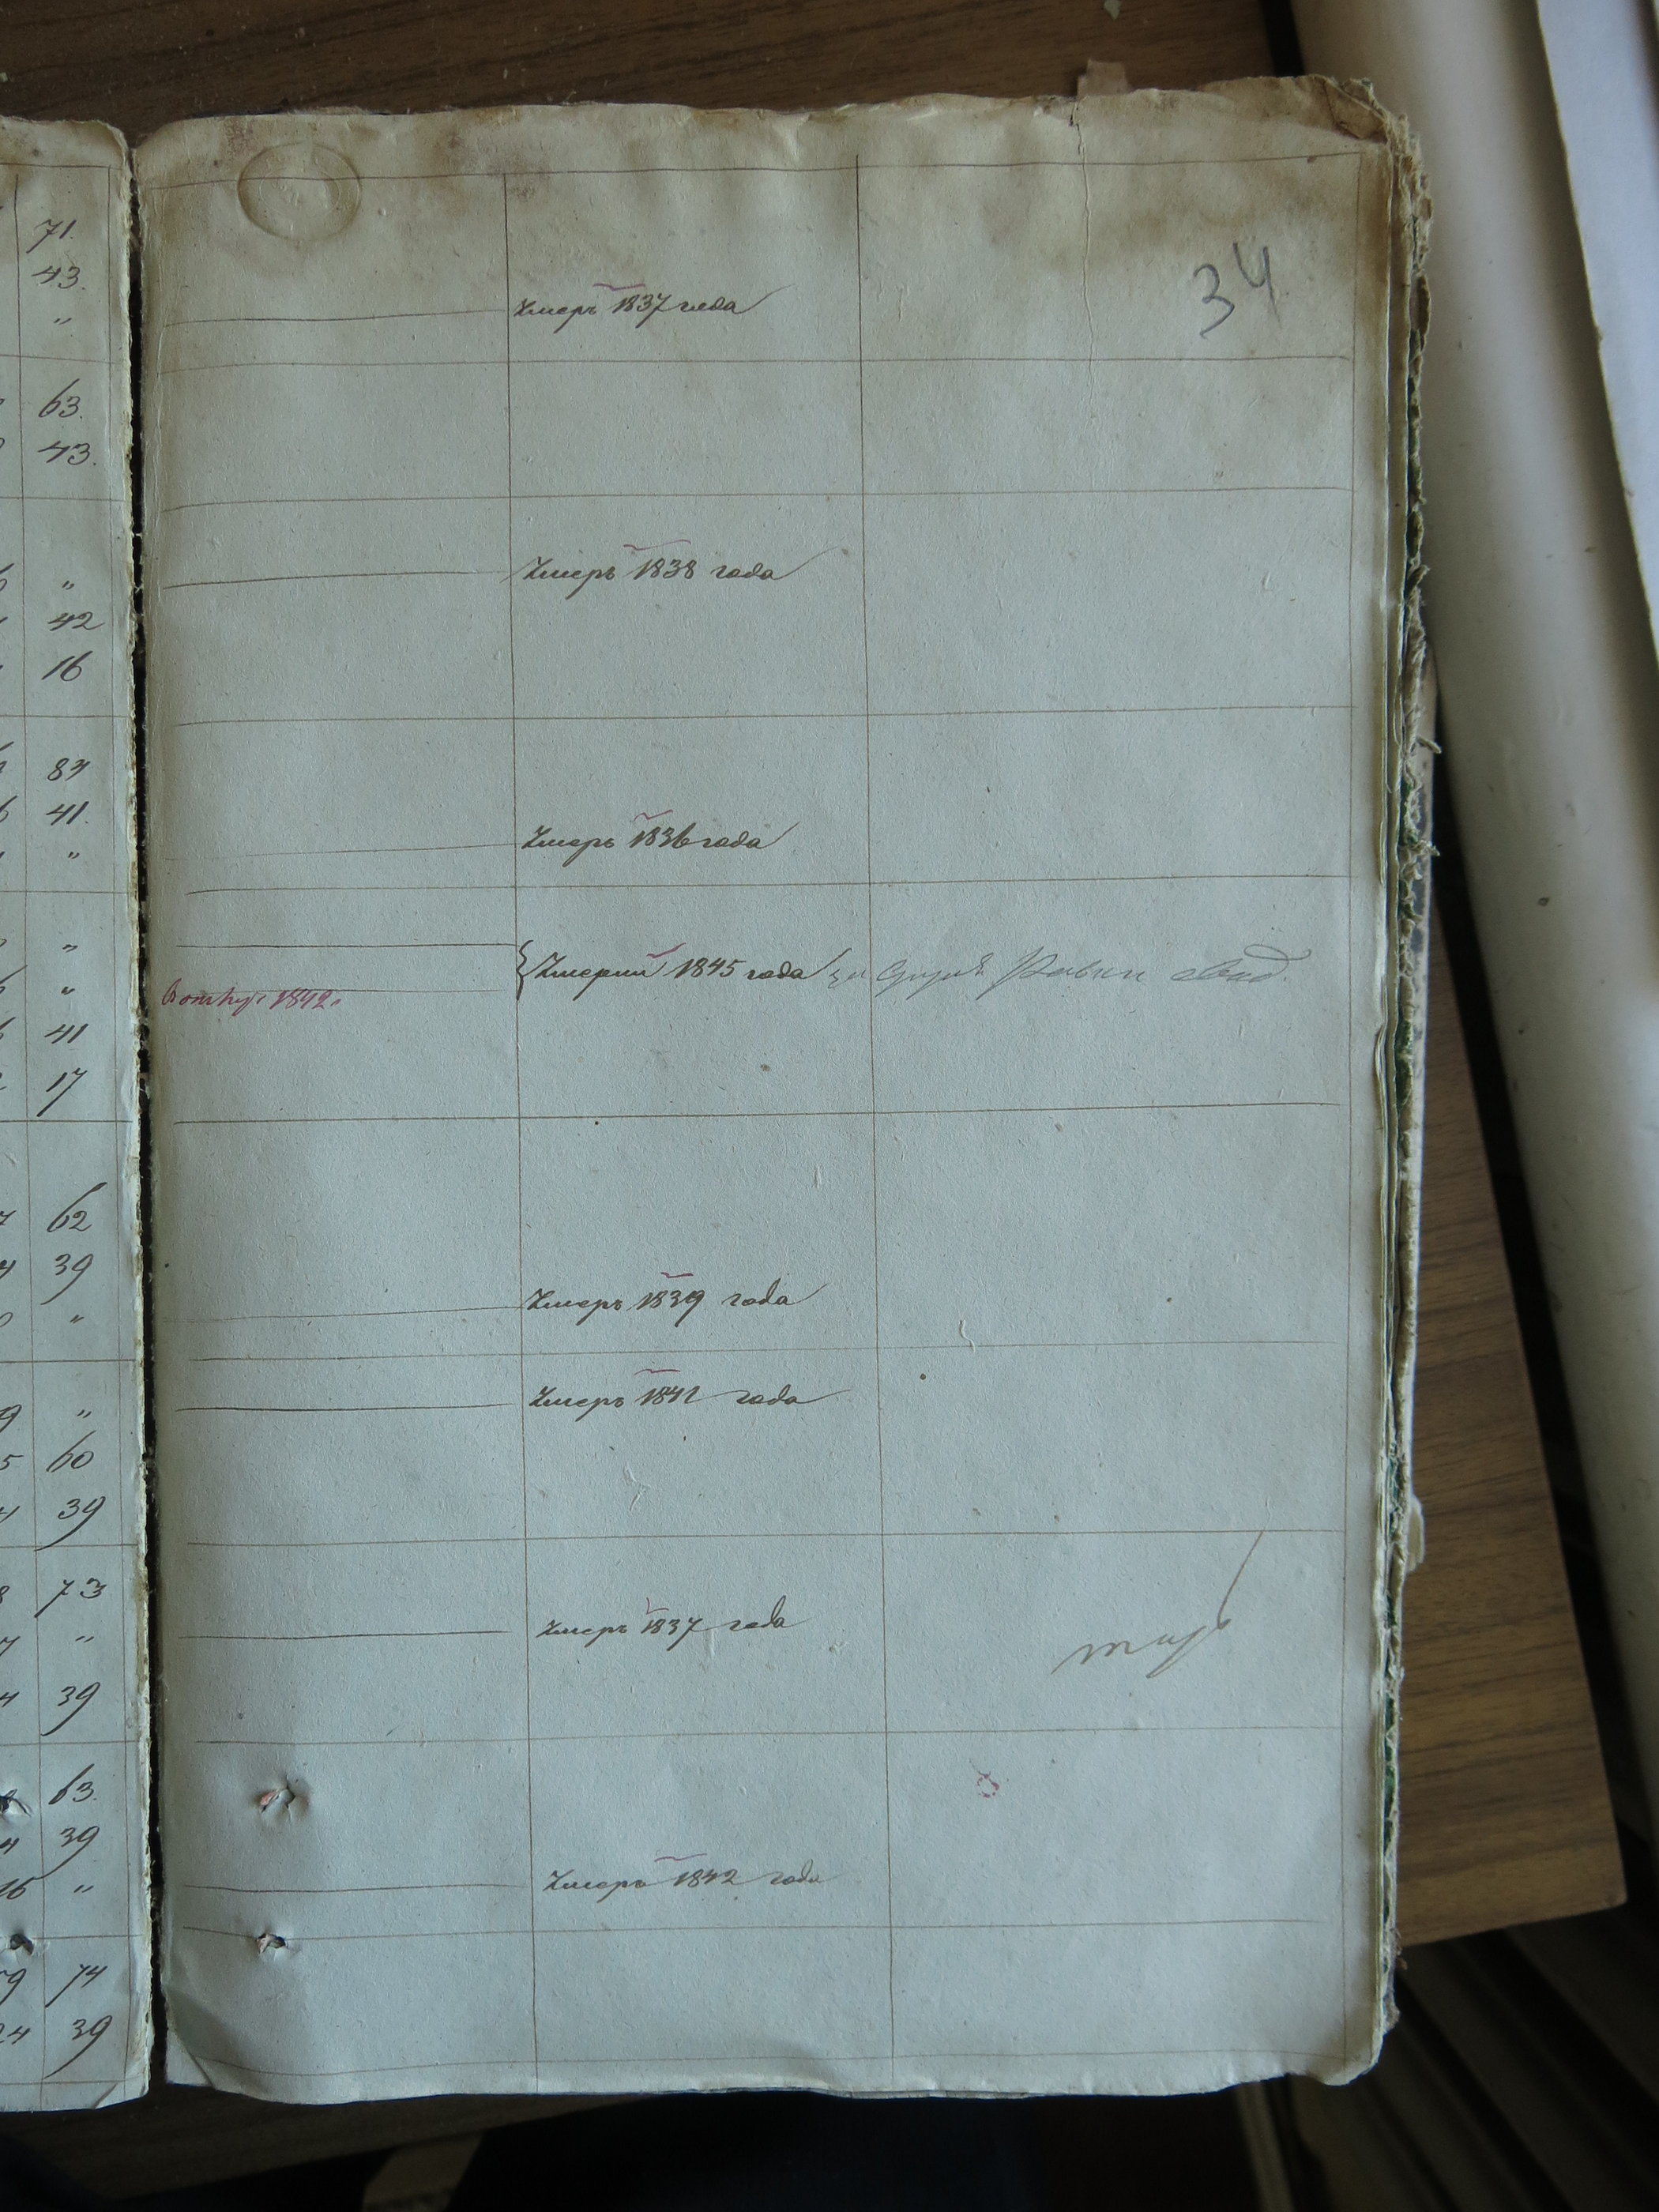 71.
43.
"
63.
43.
"
42
16
84
41.
"
"
"
41
17
62
39
"
"
60
39
73
"
39
63.
39
"
74
39
34
Умеръ 1837 года
Умеръ 1838 года
Умеръ 1836 года
Умерли 1845 года
1842
Умеръ 1839 года
Умеръ 1841 года
Умеръ 1837 года
Умеръ 1842 года